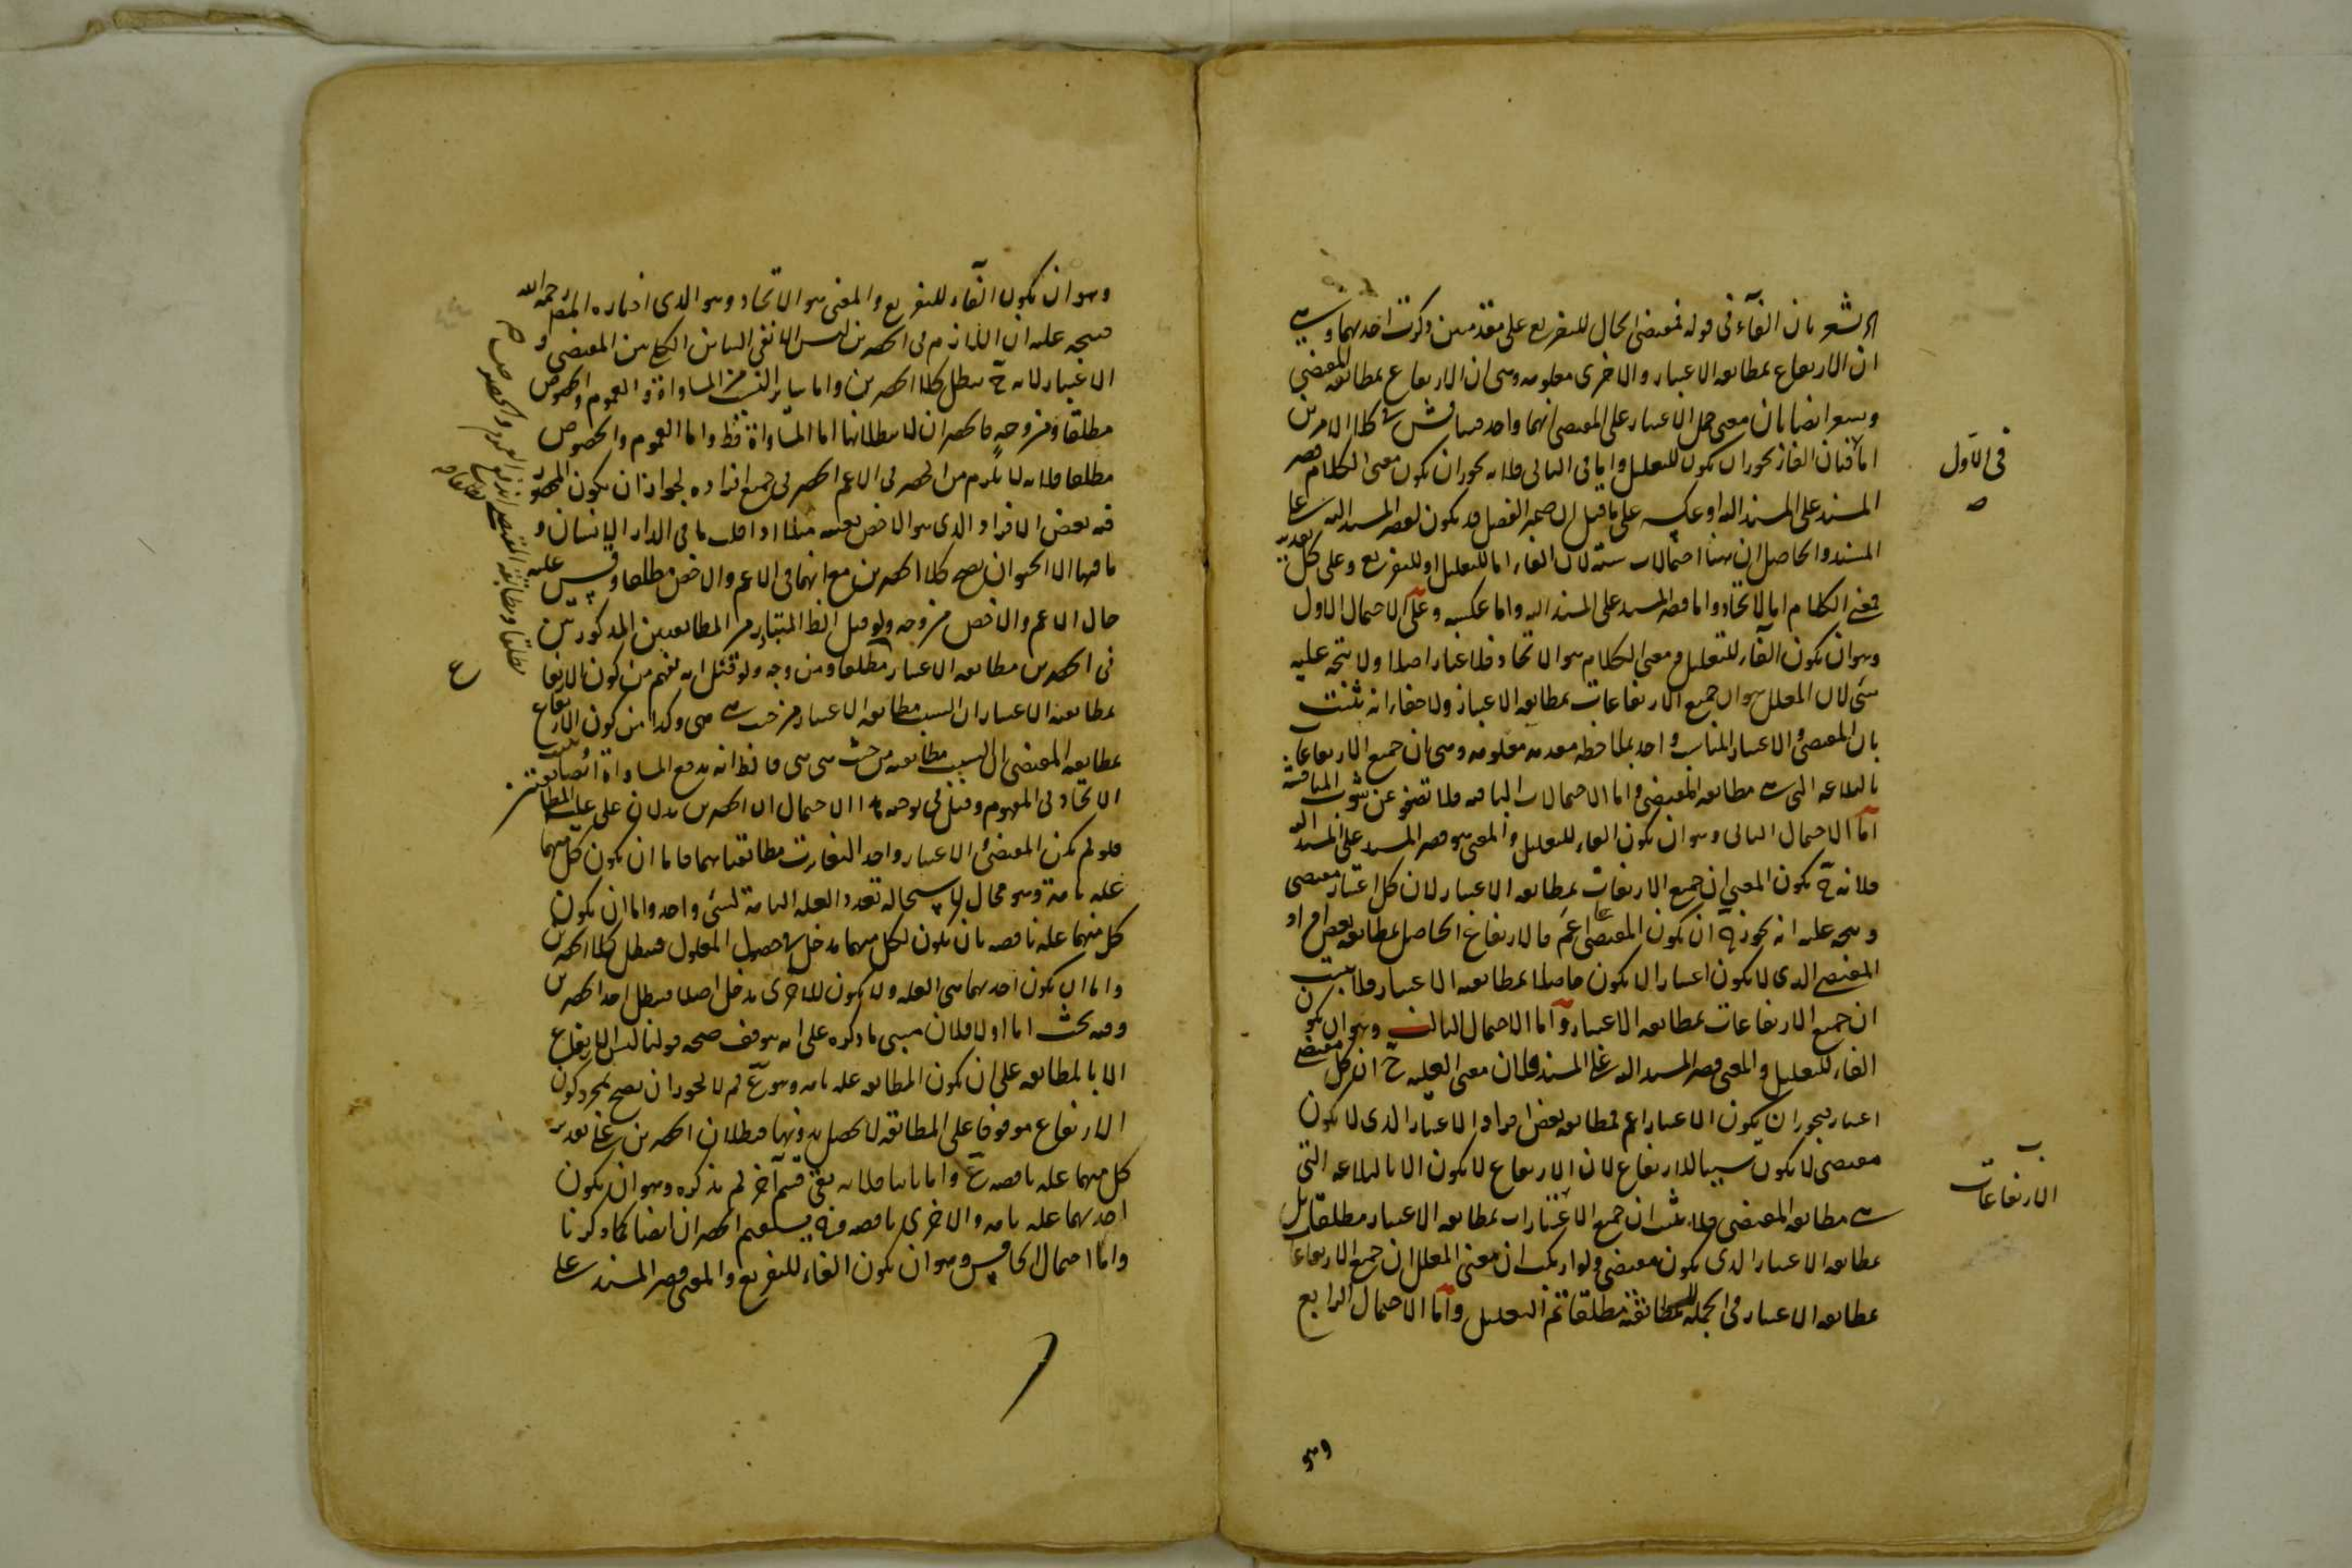 يشعر بان الفاء فى قوله فمقتضى الحال للتفريع على مقدمتين ذكرت احديهما وهى
ان الارتفاع بمطابقه الاعتبار والاخرى معلومه وهى ان الارتفاع بمطابقه المقتضى
ويشعر ايضا بان معنى حمل الاعتبار على المقتضى انهما واحد فيناقش فى كلا الامرين
اما فلان الفاء يجوز ان يكون للتعليل واما فى الثانى فلانه يجوز ان يكون معنى الكلام قصر
فى الاول
المسند على المسند اليه او عكسه على ما قيل ان ضمير الفصل قد يكون لقصر المسند اليه على
المسند والحاصل ان هنا احتمالات سته لان الفاء اما للتعليل او للتفريع وعلى كل تقدير
فمعنى الكلام اما الاتحاد واما قصر المسند على المسند اليه واما عكسه وعلى الاحتمال الاول
وهو ان يكون الفاء للتعليل ومعنى الكلام هو الاتحاد فلا غبار اصلا ولا يتجه عليه
شىء لان المعلل هو ان جميع الارتفاعات بمطابقه الاعتبار ولا خفاء انه يثبت
بان المقتضى والاعتبار المناسب واحد بملاحظه مقدمه معلومه وهى ان جميع الارتفاعات
بالبلاغه التى هى مطابقه المقتضى واما الاحتمالات الباقيه فلا تصفو عن شوب المناقشة
اما الاحتمال الثانى وهو ان يكون الفاء للتعليل والمعنى هو قصر المسند على المسند اليه
فلانه ح يكون المعنى ان جميع الارتفاعات بمطابقه الاعتبار لان كل اعتبار مقتضى
ويتجه عليه انه يجوز ان يكون المقتضى اعم فالارتفاع الحاصل بمطابقه بعض افراد
المقتضى الذى لا يكون اعتبارا لا يكون حاصلا بمطابقه الاعتبار فلا يثبت
ان جميع الارتفاعات بمطابقه الاعتبار واما الاحتمال الثالث وهو ان يكون
الفاء للتعليل والمعنى قصر المسند اليه على المسند فلان معنى العليه ح ان كل مقتضى
اعتبار فيجوز ان يكون الاعتبار اعم فمطابقه بعض افراد الاعتبار الذى لا يكون
مقتضى لا يكون سببا للارتفاع لان الارتفاع لا يكون الا بالبلاغه التى
هى مطابقه المقتضى فلا يثبت ان جميع الاعتبارات بمطابقه الاعتبار مطلقا بل
الارتفاعات
بمطابقه الاعتبار الذى يكون مقتضى ولو ارتكب ان معنى المعلل ان جميع الارتفاعات
بمطابقه الاعتبار فى الجمله لا بمطابقته مطلقا تم التعليل واما الاحتمال الرابع
وهو
وهو ان يكون الفاء للتفريع والمعنى هو الاتحاد وهو الذى اختاره المص رحمه الله
فيتجه عليه ان اللازم من الحصرين ليس الا نفى التباين الكلى بين المقتضى و
الاعتبار لانه ح يبطل كلا الحصرين واما سائر النسب من المساواة والعموم والخصوص
مطلقا ومن وجه فالحصران لا يبطلانها اما المساواة فظ واما العموم والخصوص
مطلقا فلانه لا يلزم من الحصر فى الاعم الحصر فى جميع افراده لجواز ان يكون المحصور
فيه بعض الافراد الذى هو الاخص بعينه مثلا اذا قلت ما فى الدار الا انسان و
ما فيها الا الحيوان يصح كلا الحصرين مع انهما فى الاعم والاخص مطلقا وقس عليه
حال الاعم والاخص من وجه ولو قيل الظ المتبادر من المطابقتين المذكورتين
فى الحصرين مطابقه الاعتبار مطلقا ومن وجه ولو قيل انه يفهم من كون الارتفاع
بمطابقه الاعتبار ان السبب مطابقه الاعتبار من حيث هى هى وكذا من كون الارتفاع
بمطابقه المقتضى ان السبب مطابقته من حيث هى هى فالظ انه يدفع المساواة ايضا ويثبت
الاتحاد فى المفهوم وقيل فى توجيه هذا الاحتمال ان الحصرين يدلان على عليه المطابقتين
فلو لم يكن المقتضى والاعتبار واحدا لتغايرت مطابقتاهما فاما ان يكون كل منهما
عله تامة وهو محال لاستحاله تعدد العله التامة لشىء واحد واما ان يكون
كل منهما عله ناقصه بان يكون لكل منهما مدخل فى حصول المعلول فيبطل كلا الحصرين
واما ان يكون احديهما هى العله ولا يكون للاخرى مدخل اصلا فيبطل احد الحصرين
وفيه بحث اما اولا فلان مبنى ما ذكره على انه يتوقف صحه قولنا ليس الارتفاع
الا بالمطابقه على ان يكون المطابقه عله تامه وهو ع لم لا يجوز ان يصح بمجرد كون
الارتفاع موقوفا على المطابقه لا يحصل بدونها فبطلان الحصرين على تقدير
كل منهما عله ناقصه ع واما ثانيا فلانه بقى قسم آخر لم يذكره وهو ان يكون
احديهما عله تامه والاخرى ناقصه فانه يستقيم الحصران ايضا كما ذكرنا
واما احتمال الخامس وهو ان يكون الفاء للتفريع والمعنى قصر المسند على